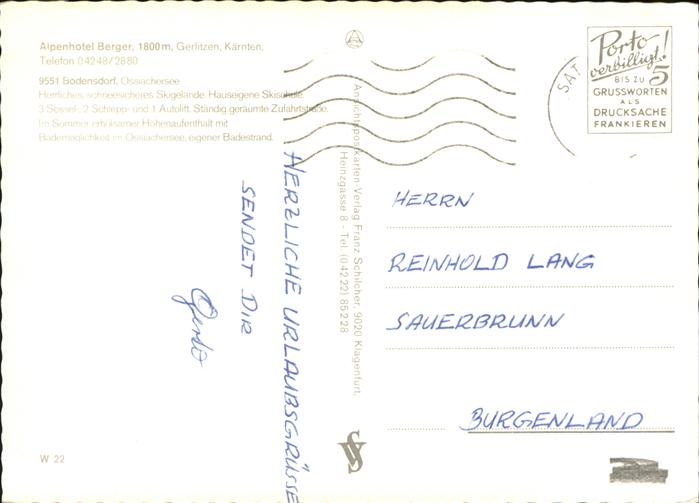 Alpenhotel Berger, 1800m, Gerlitzen, Kärnten,
Telefon 04248/2880
9551 Bodensdorf, Ossiachersee
Herrliches, schneesicheres Skigelände. Hauseigene Skischule.
3 Sessel-, 2 Schlepp- und 1 Autolift. Ständig geräumte Zufahrtstraße.
Im Sommer erholsamer Höhenaufenthalt mit
Bademöglichkeit im Ossiachersee, eigener Badestrand.
HERZLICHE URLAUBSGRÜSSE
SENDET DIR
W 22
Ansichtspostkarten-Verlag Franz Schilcher, 9020 Klagenfurt,
Heinzgasse 8 - Tel. (04222) 85228
SAT
Porto
verbilligt!
BIS ZU 5
GRUSSWORTEN
ALS
DRUCKSACHE
FRANKIEREN
HERRN
REINHOLD LANG
SAUERBRUNN
BURGENLAND